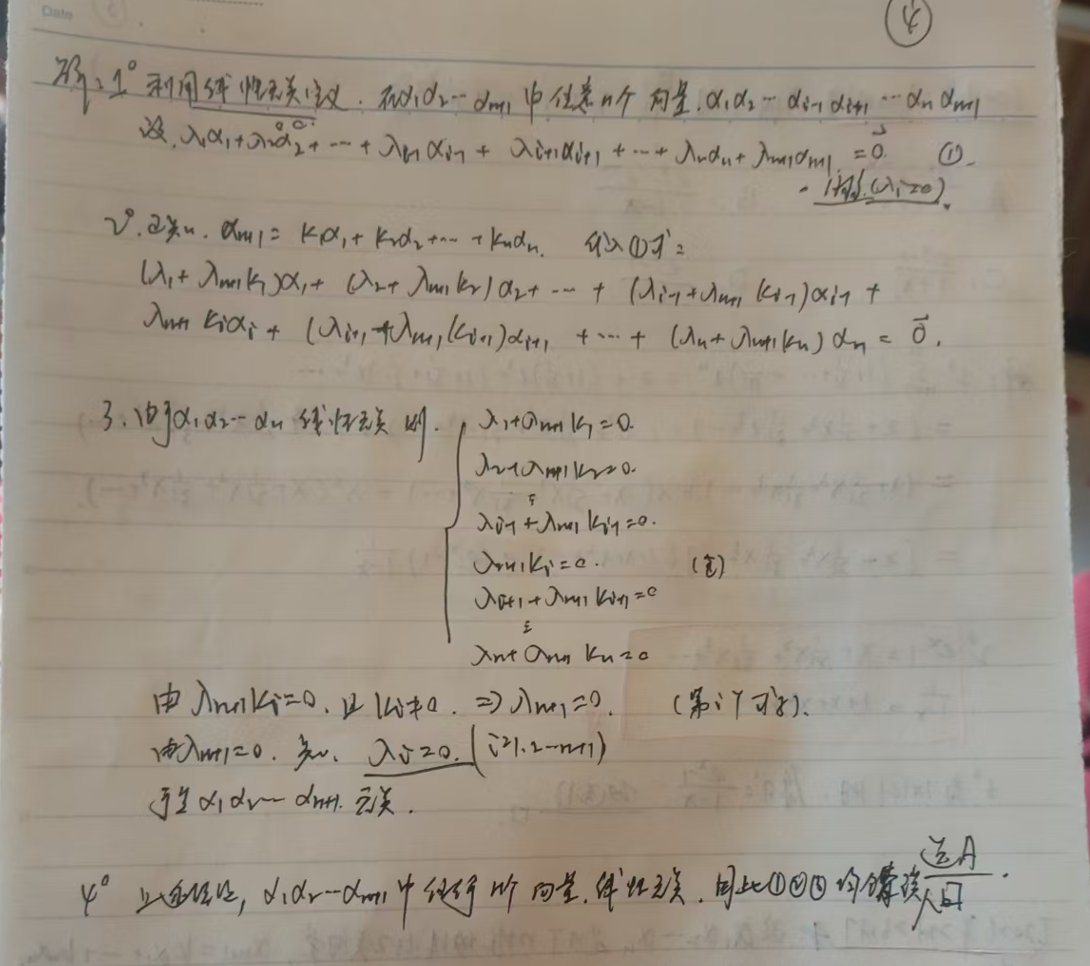 Date
④
解: 1° 利用线性无关定义. 在α₁α₂⋯αₙ₊₁ 中任意n个向量. α₁α₂⋯αᵢ₋₁ αᵢ₊₁ ⋯αₙ αₙ₊₁
设. λ₁α₁+λ₂α₂+⋯+λᵢ₋₁αᵢ₋₁+λᵢ₊₁αᵢ₊₁+⋯+λₙαₙ+λₙ₊₁αₙ₊₁=0⃗. ①
(λᵢ=0).
2°. 已知. αₙ₊₁=k₁α₁+k₂α₂+⋯+kₙαₙ. 代入①式:
(λ₁+λₙ₊₁k₁)α₁+(λ₂+λₙ₊₁k₂)α₂+⋯+(λᵢ₋₁+λₙ₊₁kᵢ₋₁)αᵢ₋₁+
λₙ₊₁kᵢαᵢ+(λᵢ₊₁+λₙ₊₁kᵢ₊₁)αᵢ₊₁+⋯+(λₙ+λₙ₊₁kₙ)αₙ=0⃗.
3. 由于α₁α₂⋯αₙ 线性无关 则.
λ₁+λₙ₊₁k₁=0.
λ₂+λₙ₊₁k₂=0.
⋮
λᵢ₋₁+λₙ₊₁kᵢ₋₁=0.
λₙ₊₁kᵢ=0.
λᵢ₊₁+λₙ₊₁kᵢ₊₁=0
⋮
λₙ+λₙ₊₁kₙ=0
由λₙ₊₁kᵢ=0. 且kᵢ≠0. ⇒λₙ₊₁=0. (第i个式子).
由λₙ₊₁=0. 知. λᵢ=0. (i=1.2⋯n+1)
于是α₁α₂⋯αₙ₊₁. 无关.
4° α₁α₂⋯αₙ₊₁中任何n个向量. 线性无关. 因此①②③均 选A